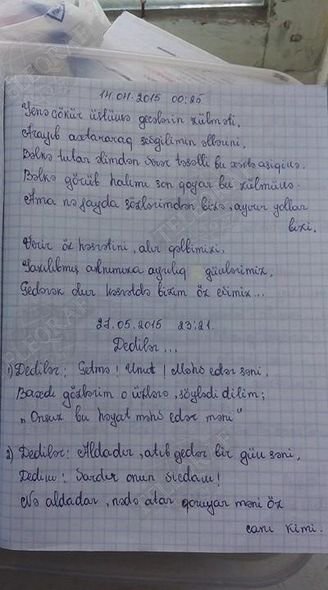 14.04.2015 00:25
Yenə çökür üstümə gecələrin zülməti.
Arayıb axtararaq sevgilimin əllərini,
Bəlkə tutar əlimdən verər təsəlli bu xəstə aşiqinə.
Bəlkə görüb halımı son qoyar bu zülmünə.
Ama nə fayda sözlərimdən bizə, ayırır yollar
bizi.
Verir öz həsrətini, alır qəlbimizi.
Yazılıbmış alnımıza ayrılıq günlərimiz,
Gedərək olur həsrətdə bizim öz evimiz...
27.05.2015 23:21
Dedilər...
1) Dedilər: Getmə! Unut! Məhv edər səni.
Baxdı gözlərim o üzlərə, söylədi dilim;
"Onsuz bu həyat məhv edər məni"
2) Dedilər: Aldadır, atıb gedər bir gün səni,
Dedim: Vardır onun vicdanı!
Nə aldadar, nədə atar qoruyar məni öz
canı kimi.